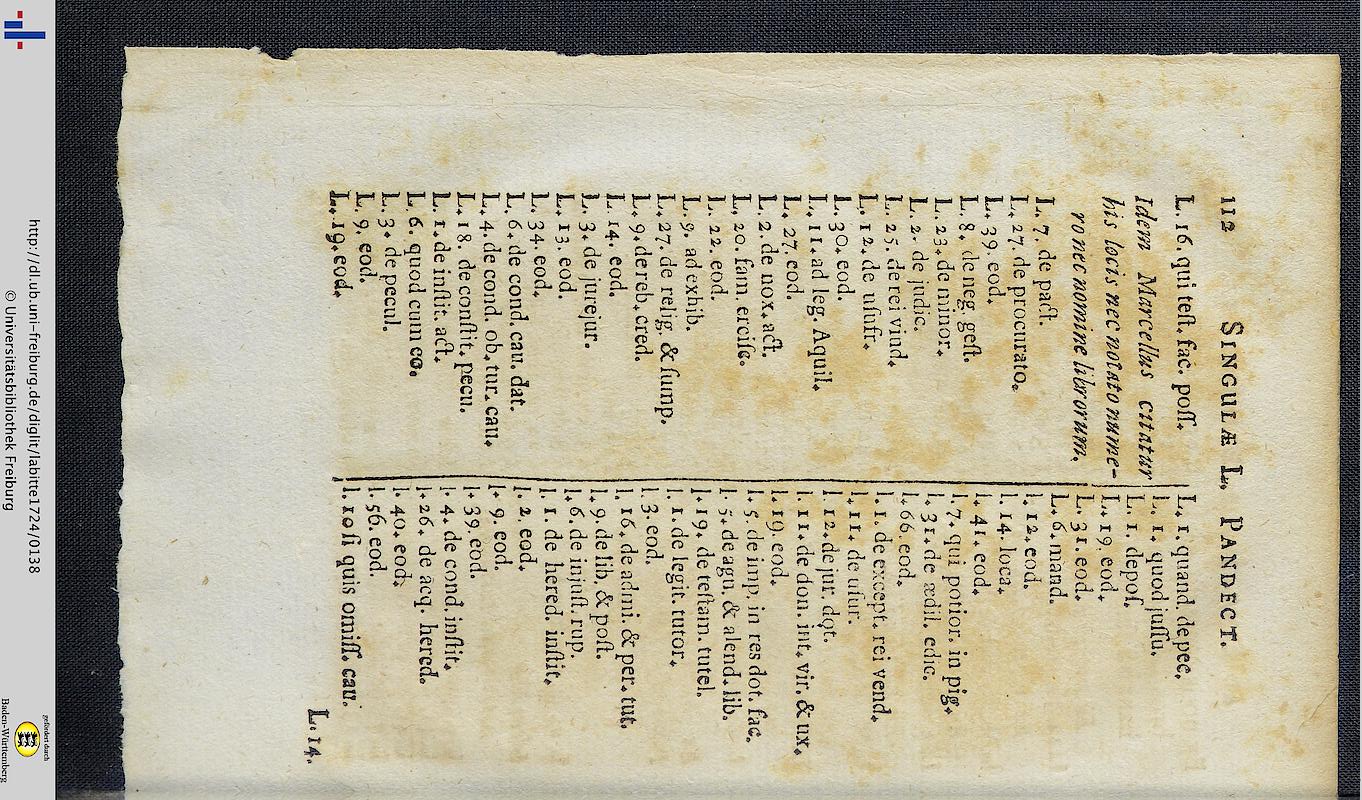 112 SINGULÆ L. PANDECT.
L. 16. qui teſt. fac. poſſ.
Idem Marcellus citatur
his locis nec notato nume-
ro nec nomine librorum.
L. 7. de pact.
L. 27. de procurato.
L. 39. eod.
L. 8. de neg. geſt.
L. 23. de minor.
L. 2. de judic.
L. 25. de rei vind.
L. 12. de uſufr.
L. 30. eod.
L. 11. ad leg. Aquil.
L. 27. eod.
L. 2. de nox. act.
L. 20. fam. erciſc.
L. 22. eod.
L. 9. ad exhib.
L. 27. de relig. & ſump.
L. 9. de reb. cred.
L. 14. eod.
L. 3. de jurejur.
L. 13. eod.
L. 34. eod.
L. 6. de cond. cau. dat.
L. 4. de cond. ob. tur. cau.
L. 18. de conſtit. pecu.
L. 1. de inſtit. act.
L. 6. quod cum eo.
L. 3. de pecul.
L. 9. eod.
L. 19. eod.
L. 1. quand. de pec.
L. 1. quod juſſu.
L. 1. depoſ.
L. 19. eod.
L. 31. eod.
L. 6. mand.
l. 12. eod.
l. 14. loca.
l. 41. eod.
l. 7. qui potior. in pig.
l. 31. de ædil. edic.
l. 66. eod.
l. 1. de except. rei vend.
l. 11. de uſur.
l. 12. de jur. dot.
l. 11. de don. int. vir. & ux.
l. 19. eod.
l. 5. de imp. in res dot. fac.
l. 5. de agn. & alend. lib.
l. 19. de teſtam. tutel.
l. 1. de legit. tutor.
l. 3. eod.
l. 16. de admi. & per. tut.
l. 9. de lib. & poſt.
l. 6. de injuſt. rup.
l. 1. de hered. inſtit.
l. 2 eod.
l. 9. eod.
l. 39. eod.
l. 4. de cond. inſtit.
l. 26. de acq. hered.
l. 40. eod.
l. 56. eod.
l. 10 ſi quis omiſſ. cau.
L. 14.
http://dl.ub.uni-freiburg.de/diglit/labitte1724/0138
© Universitätsbibliothek Freiburg
gefördert durch
Baden-Württemberg